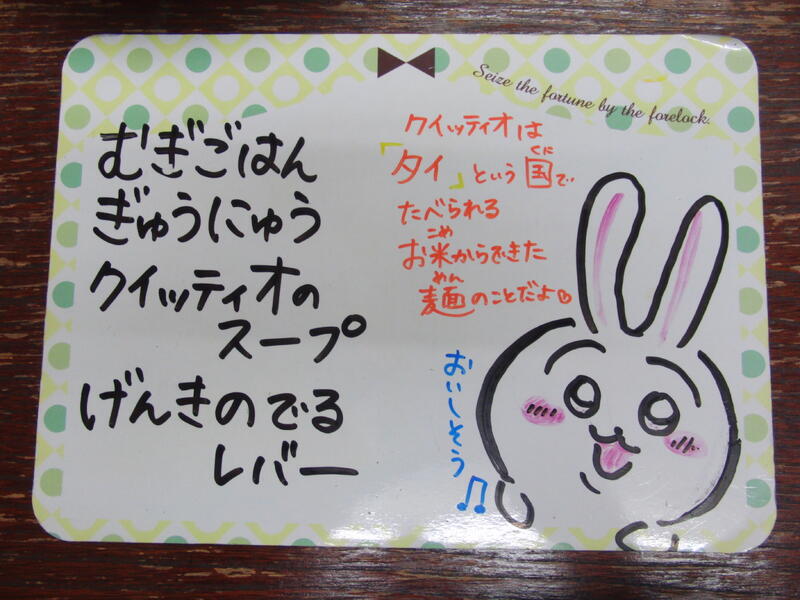 Seize the fortune by the forelock.
むぎごはん
ぎゅうにゅう
クイッティオの
スープ
げんきのでる
レバー
クイッティオは
「タイ」という国で
くに
たべられる
お米からできた
こめ
麺のことだよ
めん
おいしそう♫